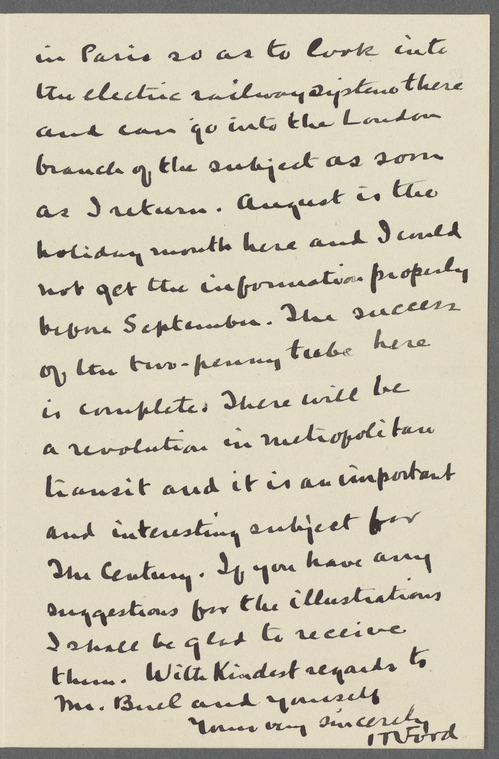 in Paris so as to look into
the electric railway systems there
and can go into the London
branch of the subject as soon
as I return. August is the
holiday month here and I could
not get the information properly
before September. The success
of the two-penny tube here
is complete. There will be
a revolution in metropolitan
transit and it is an important
and interesting subject for
The Century. If you have any
suggestions for the illustrations
I shall be glad to receive
them. With Kindest regards to
Mr. Buel and yourself
Yours very sincerely
Ford